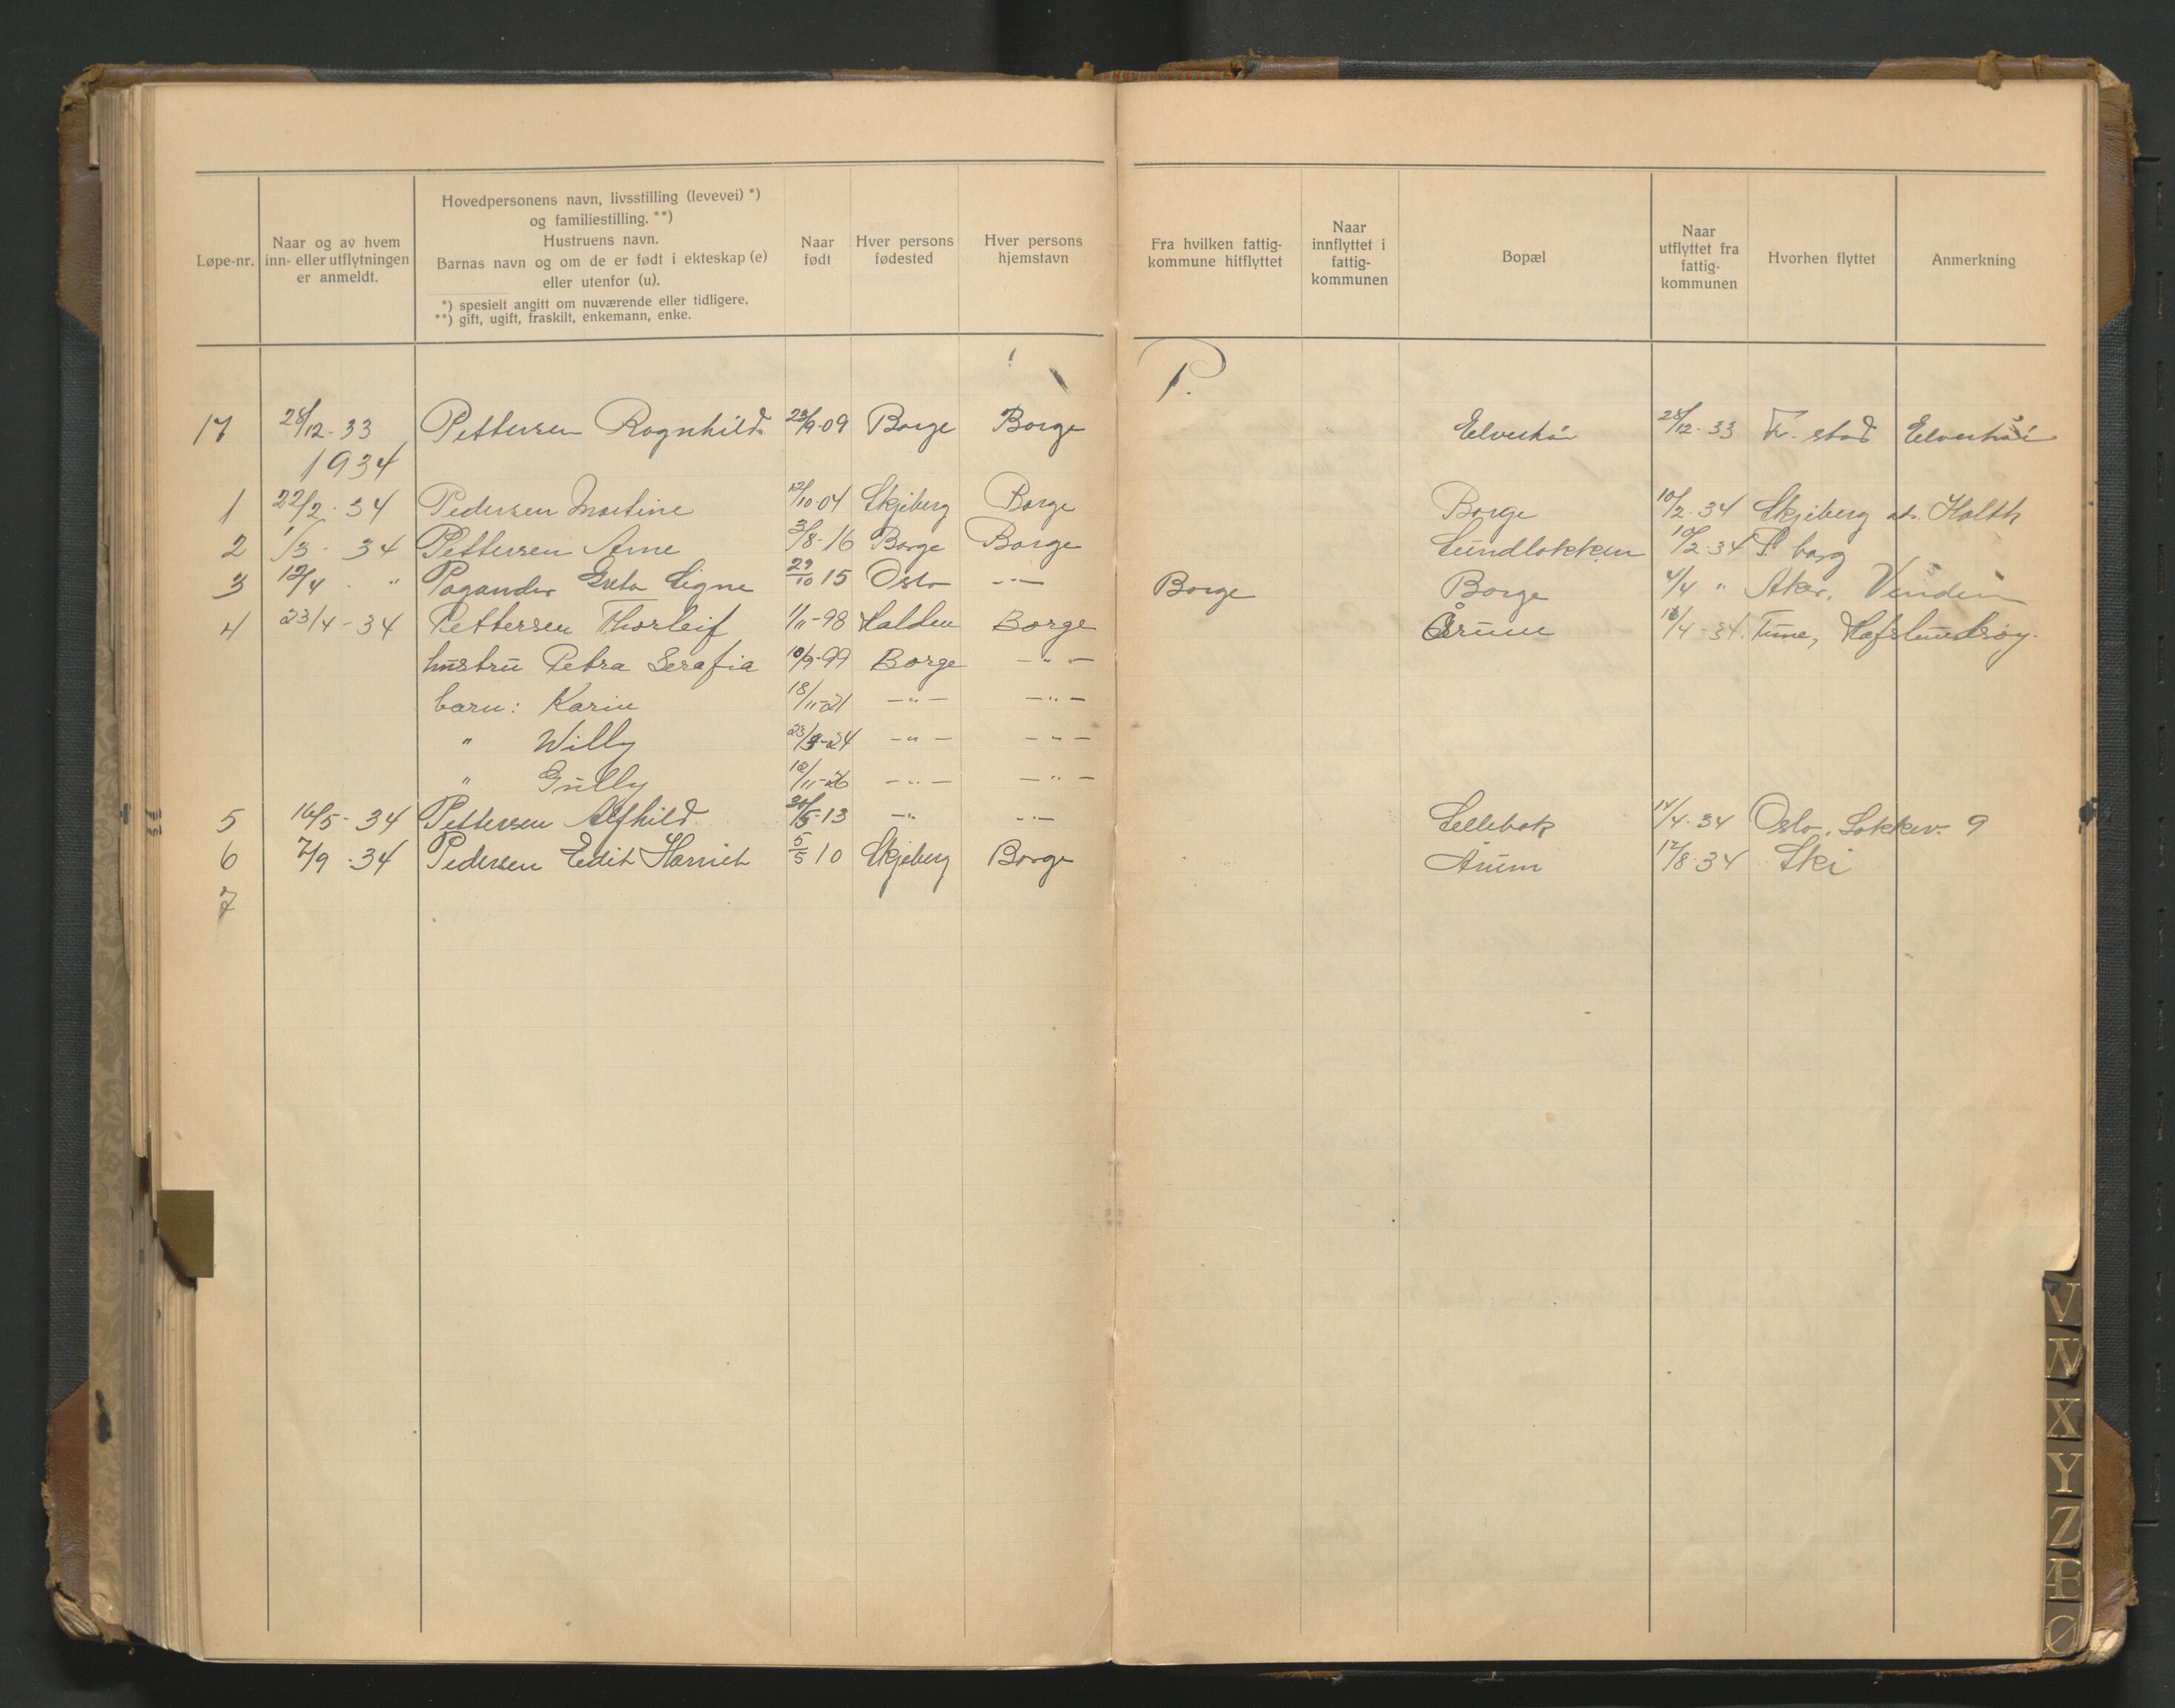 Løpe-nr.
Naar og av hvem inn- eller utflytningen er anmeldt.
Hovedpersonens navn, livsstilling (levevei) *)
og familiestilling. **)
Hustruens navn.
Barnas navn og om de er født i ekteskap (e)
eller utenfor (u).
*) spesielt angitt om nuværende eller tidligere.
**) gift, ugift, fraskilt, enkemann, enke.
Naar født
Hver persons fødested
Hver persons hjemstavn
Fra hvilken fattig-kommune hitflyttet
Naar innflyttet i fattig-kommunen
Bopæl
Naar utflyttet fra fattig-kommunen
Hvorhen flyttet
Anmerkning
P.
17 28/12-33 Pettersen Ragnhild 23/9-09 Borge Borge Elvehøi 28/12-33 Fr. stad Elvehøi
1934
1 22/2-34 Pedersen Martine 12/10-04 Skjeberg Borge Borge 10/2-34 Skjeberg st. Holth
2 1/3-34 Pettersen Arne 3/8-16 Borge Borge Lundløkken 10/2-34 S borg
3 12/4 " Pogander Greta Signe 29/10 15 Oslo -"- Borge Borge 4/4 " Aker,
4 23/4-34 Pettersen Thorleif 1/11-98 Halden Borge Årum /4-34. Tune, Hafslundsøy.
hustru Petra Serafia 10/9-99 Borge -"-
barn: Karin 18/11-21 -"- -"-
" Willy 23/ -24 -"- -"-
" Gully 12/11-26 -"- -"-
5 16/5-34 Pettersen Alfhild 30/5-13 -"- -"- Sellebak 14/4-34 Oslo, 9
6 7/9-34 Pedersen Edit Harriet 5/5 10 Skjeberg Borge Årum 12/8-34 Ski
7
V
W
X
Y
Z
Æ
Ø